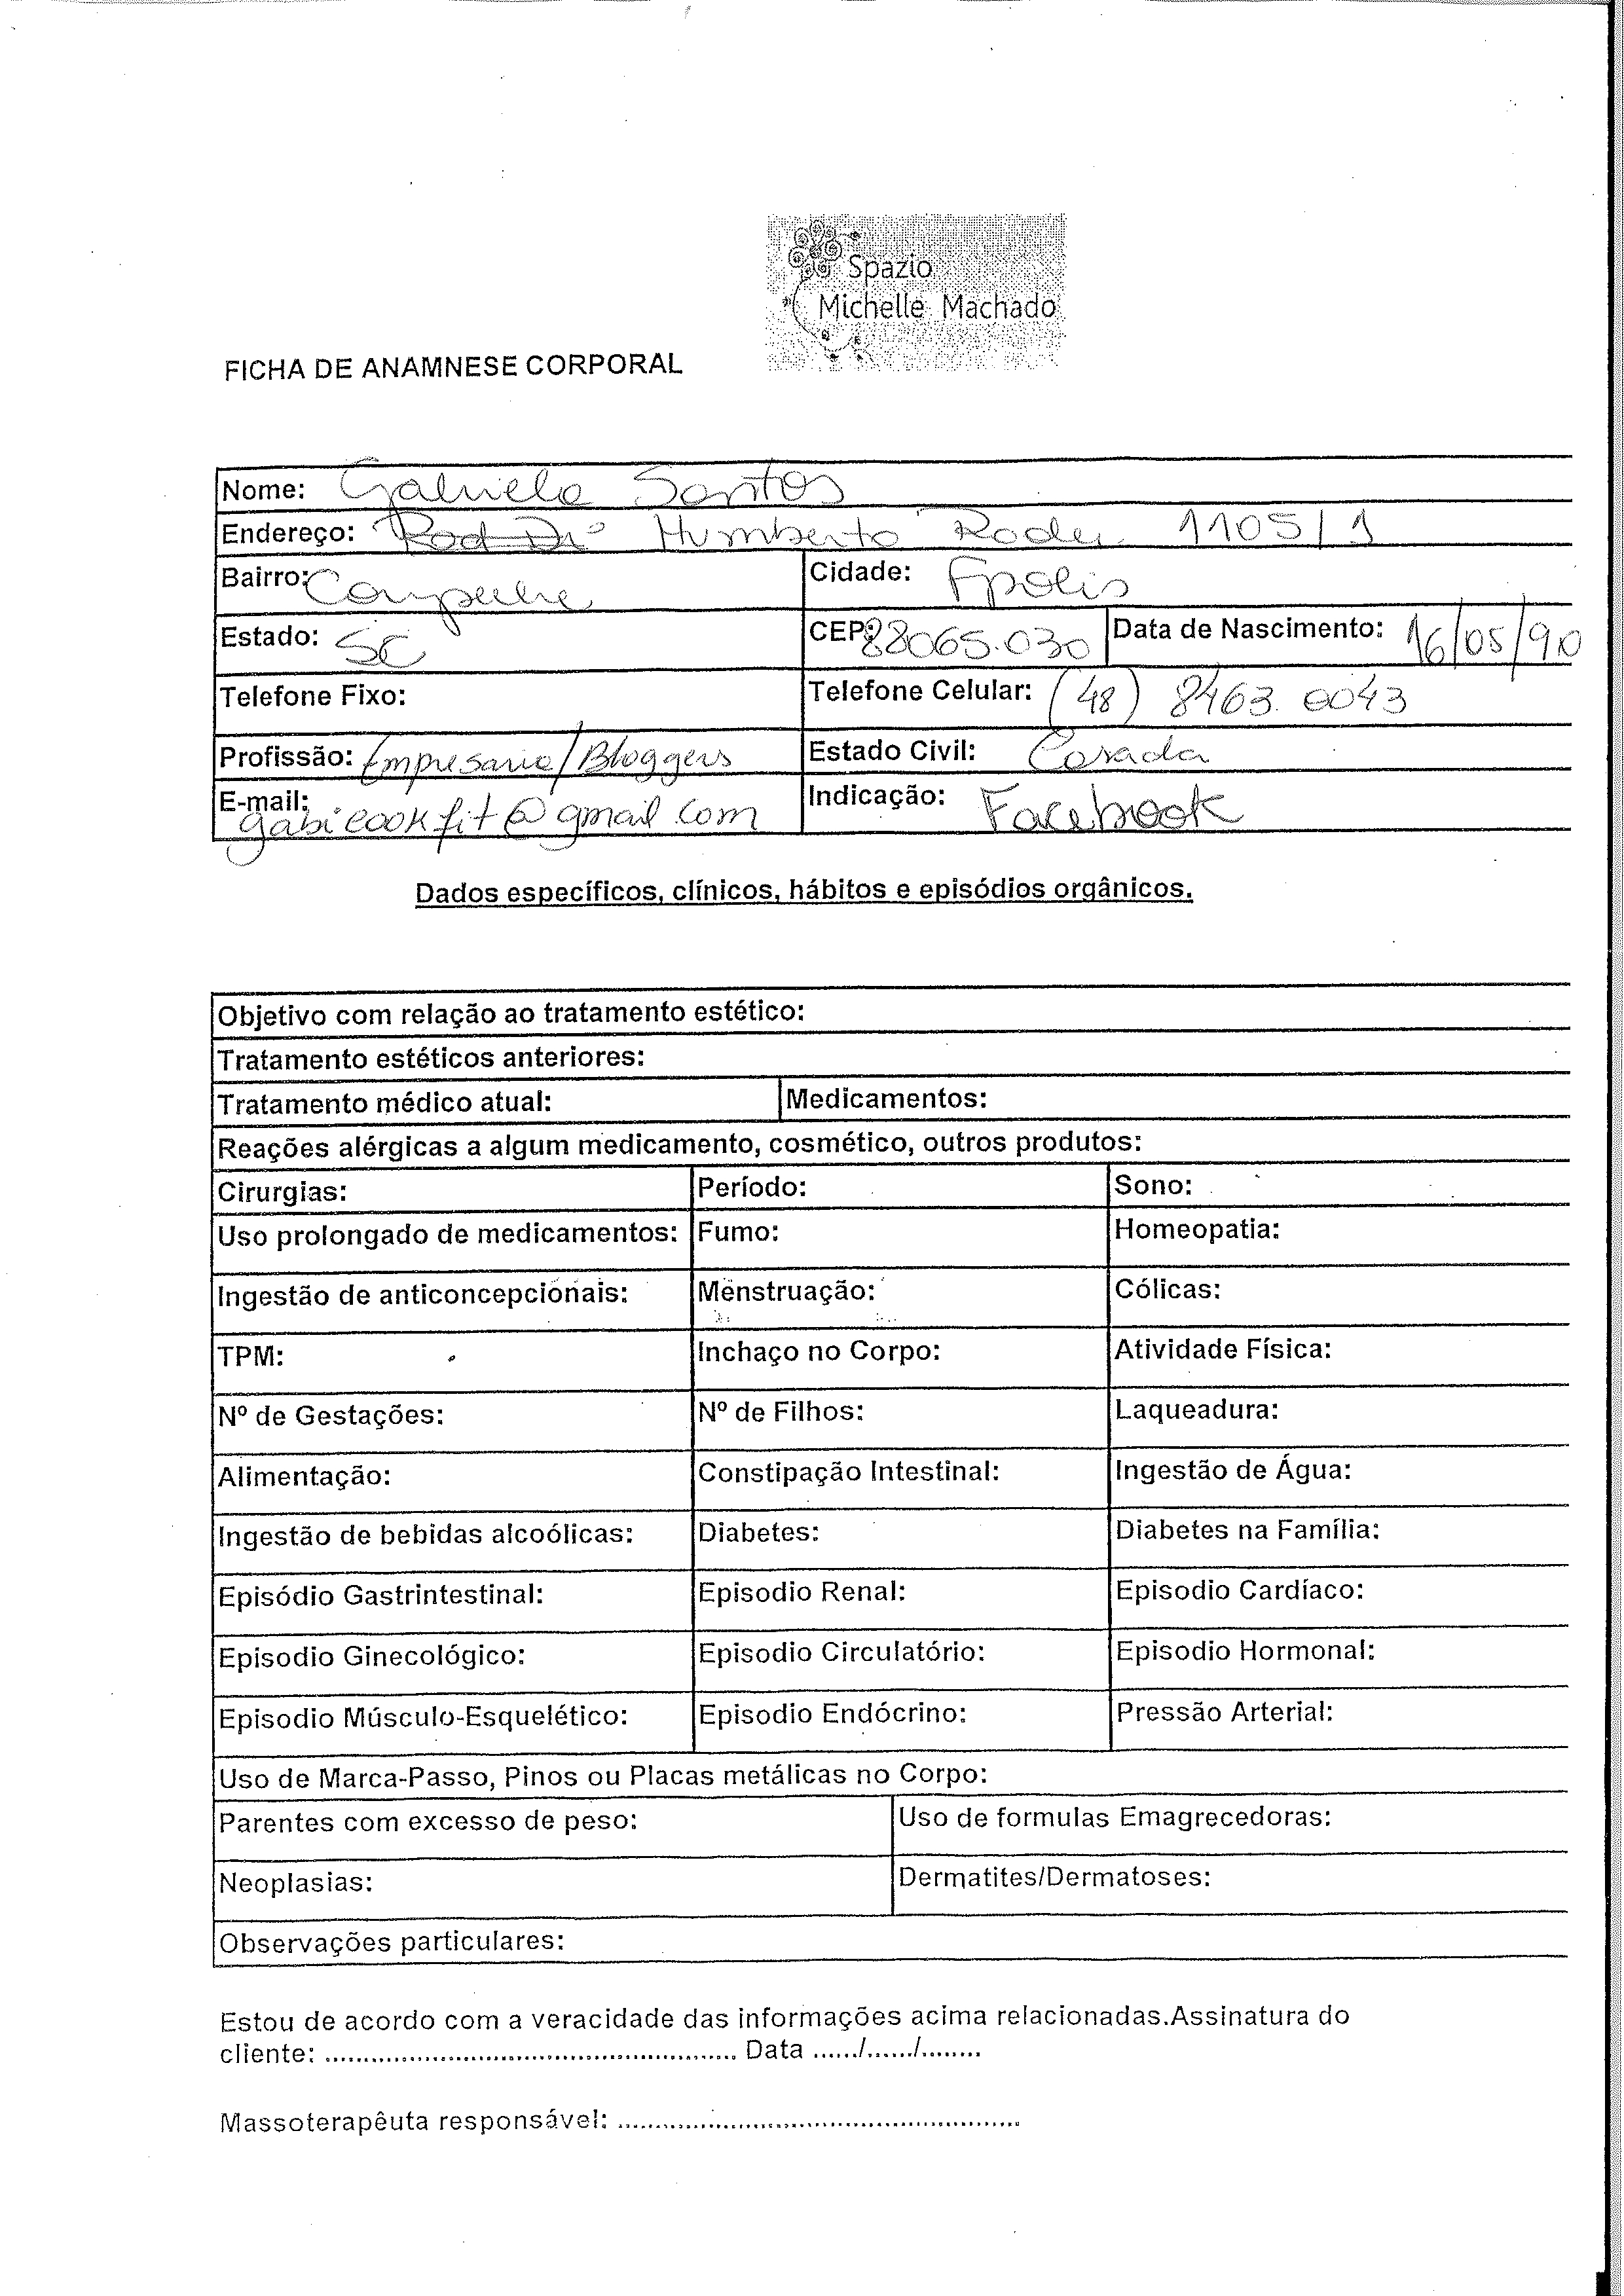 Spazio
Michelle Machado
FICHA DE ANAMNESE CORPORAL
Nome: Gabriela Santos
Endereço: Rod Dr Humberto Roder 1105/1
Bairro: Campeche Cidade: Fpolis
Estado: SC CEP: 88065.030 Data de Nascimento: 16/05/90
Telefone Fixo: Telefone Celular: (48) 8463.0043
Profissão: Empresaria/Bloggers Estado Civil: Casada
E-mail: gabicookfit@gmail.com Indicação: Facebook
Dados específicos, clínicos, hábitos e episódios orgânicos.
Objetivo com relação ao tratamento estético:
Tratamento estéticos anteriores:
Tratamento médico atual: Medicamentos:
Reações alérgicas a algum medicamento, cosmético, outros produtos:
Cirurgias: Período: Sono:
Uso prolongado de medicamentos: Fumo: Homeopatia:
Ingestão de anticoncepcionais: Menstruação: Cólicas:
TPM: Inchaço no Corpo: Atividade Física:
Nº de Gestações: Nº de Filhos: Laqueadura:
Alimentação: Constipação Intestinal: Ingestão de Água:
Ingestão de bebidas alcoólicas: Diabetes: Diabetes na Família:
Episódio Gastrintestinal: Episodio Renal: Episodio Cardíaco:
Episodio Ginecológico: Episodio Circulatório: Episodio Hormonal:
Episodio Músculo-Esquelético: Episodio Endócrino: Pressão Arterial:
Uso de Marca-Passo, Pinos ou Placas metálicas no Corpo:
Parentes com excesso de peso: Uso de formulas Emagrecedoras:
Neoplasias: Dermatites/Dermatoses:
Observações particulares:
Estou de acordo com a veracidade das informações acima relacionadas.Assinatura do
cliente: ...................................................... Data ....../....../........
Massoterapêuta responsável: .....................................................